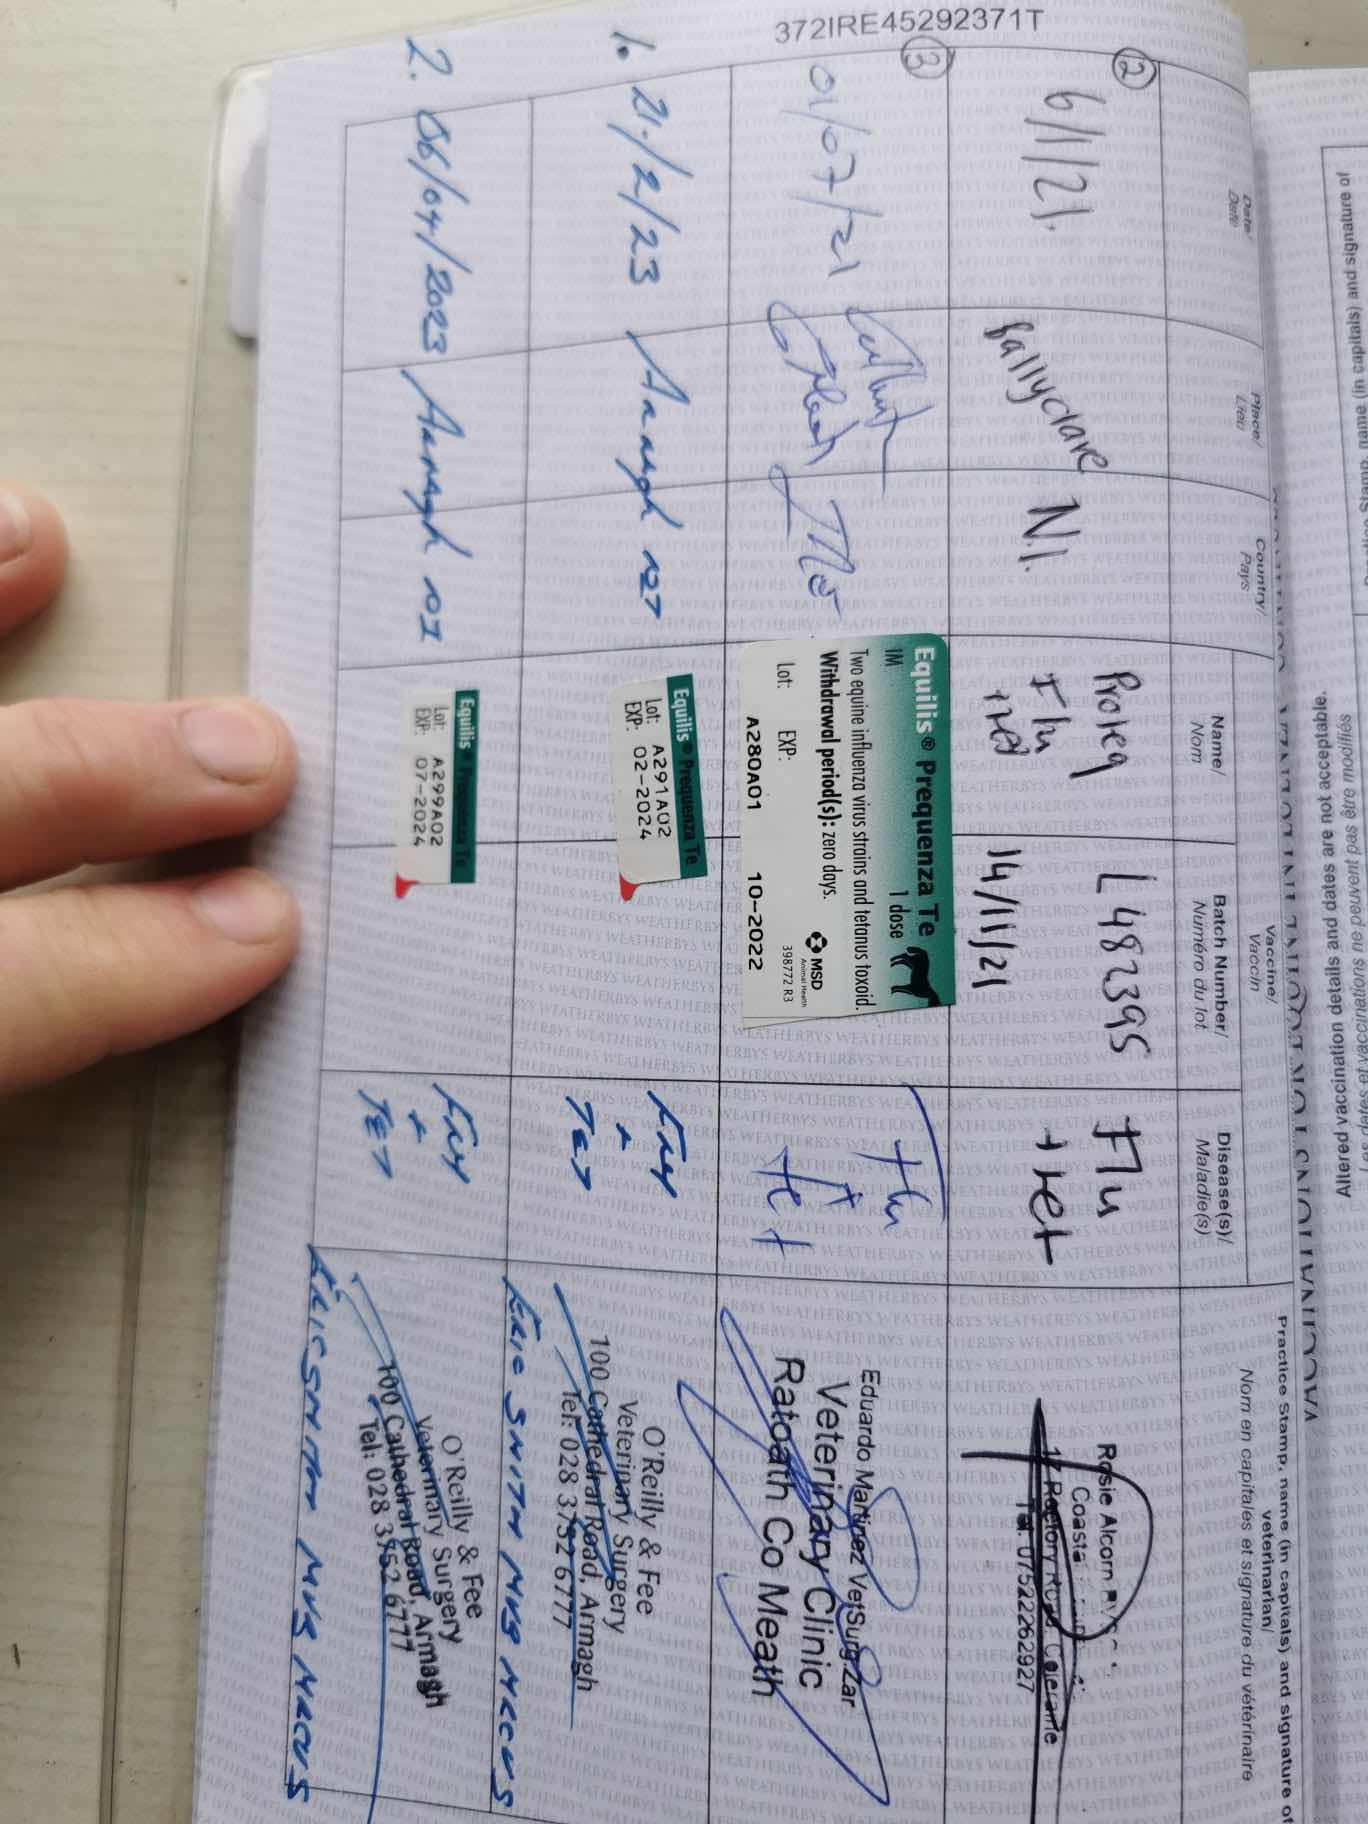 372IRE45292371T
Altered vaccination details and dates are not acceptable.
name (in capitals) and signature of
Date/
Date
Place/
Lieu
Country/
Pays
Vaccine/
Vaccin
Name/
Nom
Batch Number/
Numéro du lot
Disease(s)/
Maladie(s)
Practice Stamp, name (in capitals) and signature of
veterinarian/
Nom en capitales et signature du vétérinaire
2
6/1/21.
Ballyclare
N.I.
Proteq
Flu
+ tet
L 482395
14/11/21
Flu
+ tet
Rosie Alcorn
Coasta
17 Rectory Road, Coleraine
Tel 07522262927
3
01/07/21
Equilis® Prequenza Te
IM
1 dose
Two equine influenza virus strains and tetanus toxoid.
Withdrawal period(s): zero days.
Lot: EXP:
A280A01 10-2022
MSD
Animal Health
398772 R3
Flu
+
tet
Eduardo Martinez VetSurg Zar
Veterinary Clinic
Ratoath Co Meath
1. 21/2/23
Armagh NI
Equilis® Prequenza Te
Lot: A291A02
EXP: 02-2024
FLU
+
TET
O'Reilly & Fee
Veterinary Surgery
100 Cathedral Road, Armagh
Tel: 028 3752 67777
ERIC SMITH MVB MRCVS
2. 06/04/2023
Armagh NI
Equilis® Prequenza Te
Lot: A299A02
EXP: 07-2024
FLU
+
TET
O'Reilly & Fee
Veterinary Surgery
100 Cathedral Road, Armagh
Tel: 028 3752 6777
MVB MRCVS